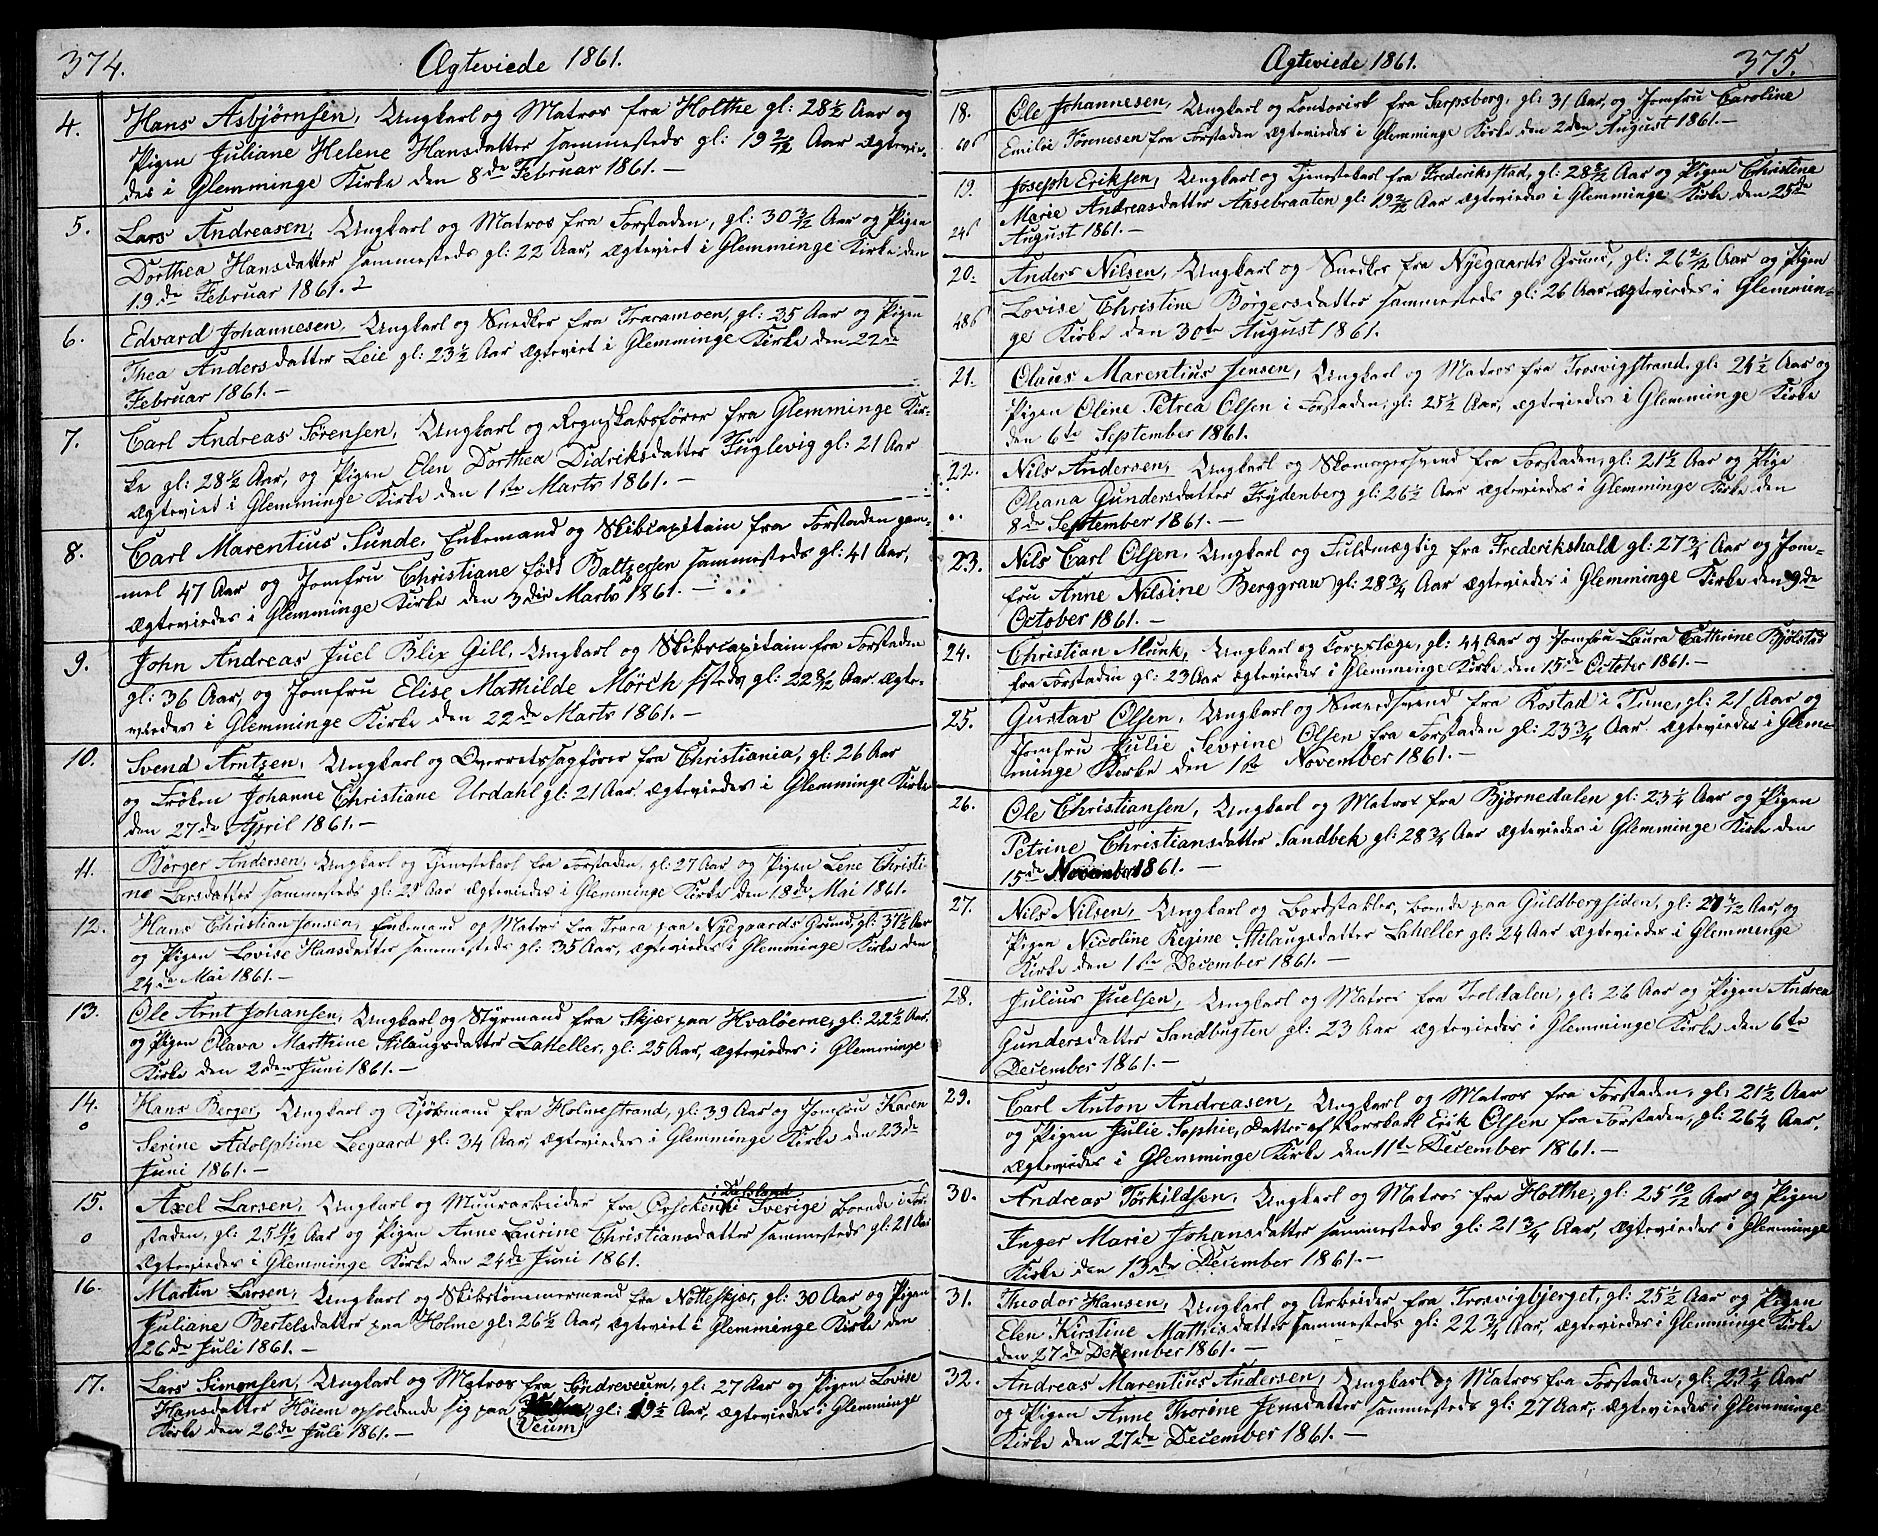 374.
Ægteviede 1861.
4. Hans Asbjørnsen, Ungkarl og Matros fra Holthe gl: 28½ Aar og
Pigen Juliane Helene Hansdatter sammesteds gl: 19 2/12 Aar Ægtevie-
des i Glemminge Kirke den 8de Februar 1861.—
5. Lars Andreasen, Ungkarl og Matros fra Forstaden, gl: 30 3/12 Aar og Pigen
Dorthea Hansdatter sammesteds gl: 22 Aar, Ægteviet i Glemminge Kirke den
19de Februar 1861.
6. Edvard Johannesen, Ungkarl og Snedker fra Traramoen, gl: 35 Aar og Pigen
Thea Andersdatter Leie gl: 23½ Aar Ægteviet i Glemminge Kirke den 22de
Februar 1861.—
7. Carl Andreas Sørensen, Ungkarl og Regnskabsfører fra Glemminge Kir-
ke gl: 28½ Aar, og Pigen Elen Dorthea Didriksdatter Fuglevig gl: 21 Aar
Ægteviet i Glemminge Kirke den 1ste Marts 1861.—
8. Carl Marentius Sunde, Enkemand og Skibcapitain fra Forstaden gam-
mel 47 Aar og Jomfru Christiane født Baltzersen sammesteds gl: 41 Aar,
Ægteviedes i Glemminge Kirke den 3die Marts 1861.—
9. John Andreas Juel Blix Gill, Ungkarl og Skibscapitain fra Forstaden
gl: 36 Aar, og Jomfru Elise Mathilde Mørch sstedv gl: 22 8/12 Aar Ægte-
viedes i Glemminge Kirke den 22de Marts 1861.—
10. Svend Arntzen, Ungkarl og Overretssagfører fra Christiania, gl: 26 Aar
og Frøken Johanne Christiane Urdahl gl: 21 Aar Ægteviedes i Glemminge Kirke
den 27de April 1861.—
11. Børger Andersen, Ungkarl og Tjenestekarl fra Forstaden, gl: 27 Aar og Pigen Lene Christi-
ne Larsdatter sammesteds gl: 21 Aar Ægteviedes i Glemminge Kirke den 18de Mai 1861.
12. Hans Christian Jensen, Enkemand og Matros fra Trara paa Nyegaards Grund, gl: 37½ Aar
og Pigen Lovise Hansdatter sammesteds gl: 35 Aar, Ægteviedes i Glemminge Kirke den
24de Mai 1861.—
13. Ole Arnt Johansen, Ungkarl og Styrmand fra Skjær paa Hvaløerne, gl: 22½ Aar,
og Pigen Olava Marthine Atilaugsdatter Laheller, gl: 25 Aar, Ægteviedes i Glemminge
Kirke den 2den Juni 1861.—
14. Hans Berger, Ungkarl og Kjøbmand fra Holmestrand, gl: 39 Aar og Jomfru Karen
o Serine Adolphine Leegaard gl: 34 Aar, Ægteviedes i Glemminge Kirke den 23de
Juni 1861.—
i Dalsland
15. Axel Larsen, Ungkarl og Muurarbeider fra i Sverige boende i For-
o staden, gl: 25 11/12 Aar og Pigen Anne Laurine Christiansdatter sammesteds gl: 21 Aar
Ægteviedes i Glemminge Kirke den 24de Juni 1861.
16. Martin Larsen, Ungkarl og Skibstømmermand fra Notteskjær, gl: 30 Aar og Pigen
Juliane Bertelsdatter paa Holme gl: 26½ Aar, Ægteviet i Glemminge Kirke den
26de Juli 1861.—
17. Lars Simonsen, Ungkarl og Matros fra Søndreveum, gl: 27 Aar og Pigen Lovise
Hansdatter Høiem opholdende sig paa gl: 19½ Aar, Ægteviedes i Glemminge
Veum
Kirke den 26de Juli 1861.—
Ægteviede 1861.
375.
18. Ole Johannesen, Ungkarl og Contorist fra Sarpsborg, gl: 31 Aar, og Jomfru Caroline
60 Emilie Tønnesen fra Forstaden Ægteviedes i Glemminge Kirke den 2den August 1861.—
19. Joseph Eriksen, Ungkarl og Tjenestekarl fra Frederiksstad, gl: 28 8/12 Aar og Pigen Christine
Marie Andreasdatter Aasebraaten gl: 19 2/12 Aar Ægteviedes i Glemminge Kirke den 25de
24 August 1861.—
20. Anders Nilsen, Ungkarl og Snedker fra Nyegaards Grund, gl: 26 2/12 Aar og Pigen
48 Lovise Christine Børgersdatter sammesteds gl: 26 Aar Ægteviedes i Glemmin-
ge Kirke den 30te August 1861.
21. Olaus Marentius Jensen, Ungkarl og Matros fra Trosvigstrand, gl: 24½ Aar og
Pigen Oline Petrea Olsen i Forstaden, gl: 25½ Aar, Ægteviedes i Glemminge Kirke
den 6te September 1861.
22. Nils Andersen, Ungkarl og Skomagersvend fra Forstaden, gl: 21½ Aar og Pige
Oliana Gundersdatter Frydenberg gl: 26½ Aar Ægteviedes i Glemminge Kirke den
8de September 1861.—
23. Nils Carl Olsen, Ungkarl og Fuldmægtig fra Frederikshald gl: 27¾ Aar og Jom-
fru Anne Nilsine Berggraw gl: 28¾ Aar Ægteviedes i Glemminge Kirke den 9de
October 1861.—
24. Christian Munk, Ungkarl og Corpslæge, gl: 44 Aar og Jomfru Laura Cathrine Bjølstad
fra Forstaden gl: 23 Aar Ægteviedes i Glemminge Kirke den 15de October 1861.—
25. Gustav Olsen, Ungkarl og Smedsvend fra Rostad i Tune, gl: 21 Aar og
Jomfru Julie Sevrine Olsen fra Forstaden gl: 23¾ Aar Ægteviedes i Glem-
minge Kirke den 1ste November 1861.—
26. Ole Christiansen, Ungkarl og Matros fra Bjørnedalen gl: 23¼ Aar og Pigen
Petrine Christiansdatter Sandbek gl: 28¾ Aar Ægteviedes i Glemminge Kirke den
15de November 1861.—
27. Nils Nilsen, Ungkarl og Bordstabler, boende paa Guldbergsiden, gl: Aar, og
Pigen Nicoline Regine Atilaugsdatter Laheller gl: 24 Aar Ægteviedes i Glemmenge
Kirke den 1ste December 1861.—
28. Julius Juelsen, Ungkarl og Matros fra Troldalen, gl: 26 Aar og Pigen Andrea
Gundersdatter Sandbugten gl: 23 Aar Ægteviedes i Glemminge Kirke den 6te
December 1861.—
29. Carl Anton Andreasen, Ungkarl og Matros fra Forstaden, gl: 21½ Aar
og Pigen Julie Sophie, Datter af Rorskarl Erik Olsen fra Forstaden, gl: 26¼ Aar,
Ægteviedes i Glemminge Kirke den 11te December 1861.—
30. Andreas Torkildsen, Ungkarl og Matros fra Holthe, gl: 25 10/12 Aar og Pigen
Inger Marie Johansdatter sammesteds gl: 21¾ Aar, Ægteviedes i Glemminge
Kirke den 13de December 1861.—
31. Theodor Hansen, Ungkarl og Arbeider fra Trosvigbjerget, gl: 25½ Aar og Pigen
Elen Kirstine Mathisdatter sammesteds gl: 22¾ Aar, Ægteviedes i Glemminge Kirke
den 27de December 1861.—
32. Andreas Marentius Andersen, Ungkarl og Matros fra Forstaden, gl: 23¼ Aar
og Pigen Anne Thorine Jensdatter sammesteds gl: 27 Aar, Ægteviedes i Glemminge
Kirke den 27de December 1861.—